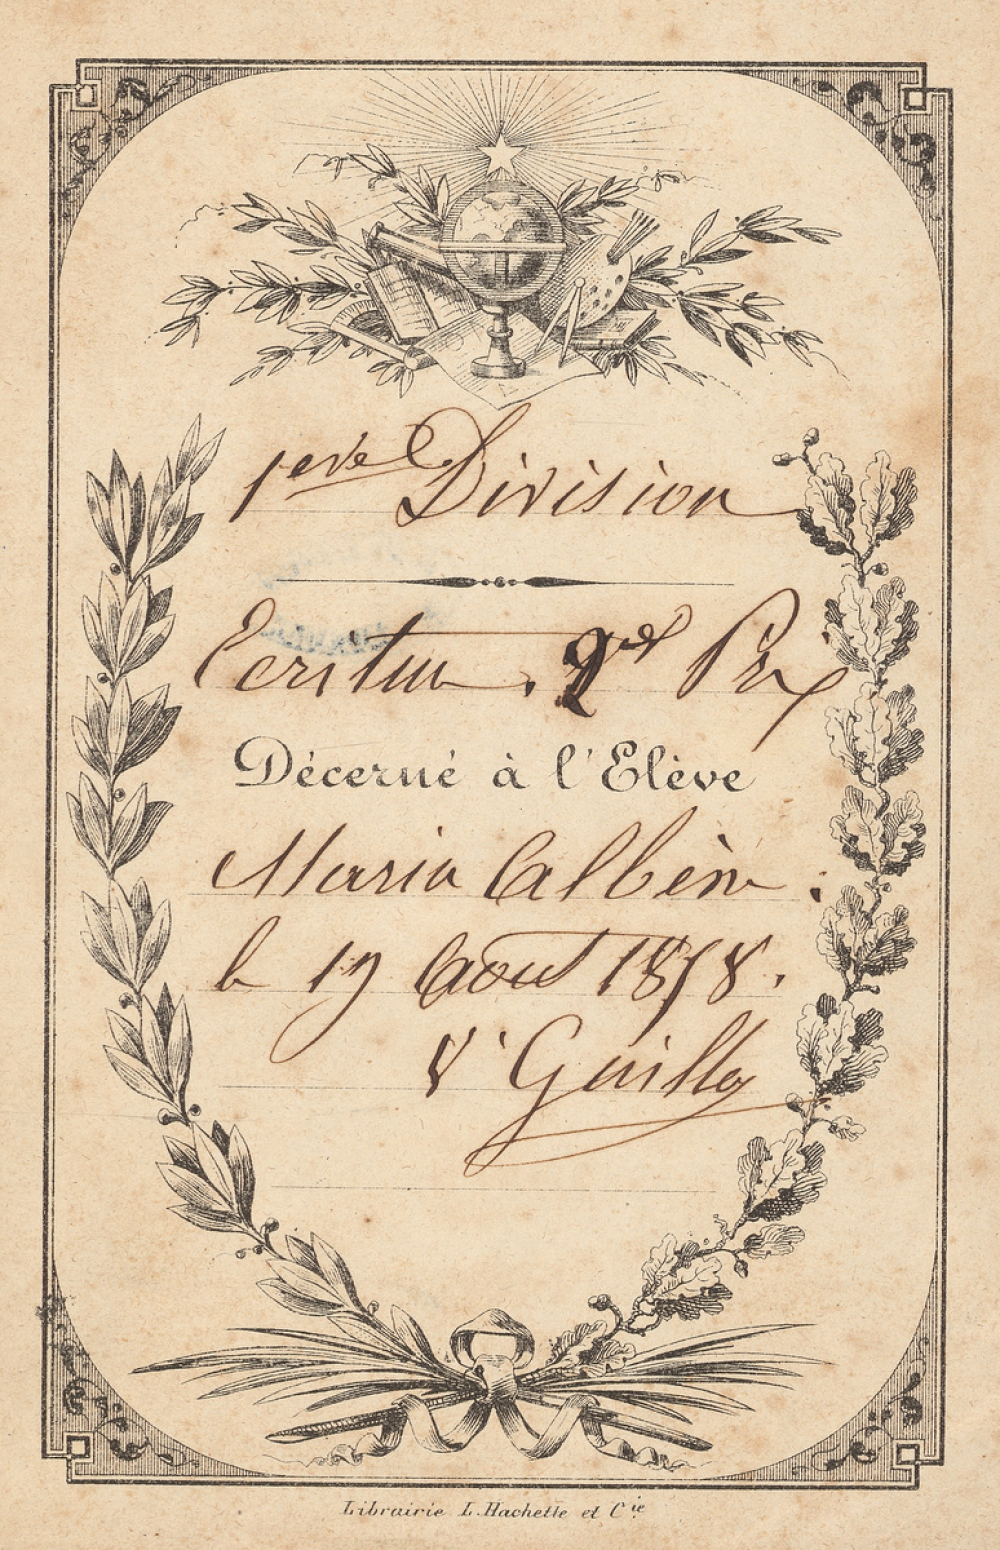 1ère Division
Ecriture. 2me Prix
Décerné à l'Elève
Maria Calbène.
le 19 Août 1878.
V. Guilloy
Librairie L. Hachette et Cie